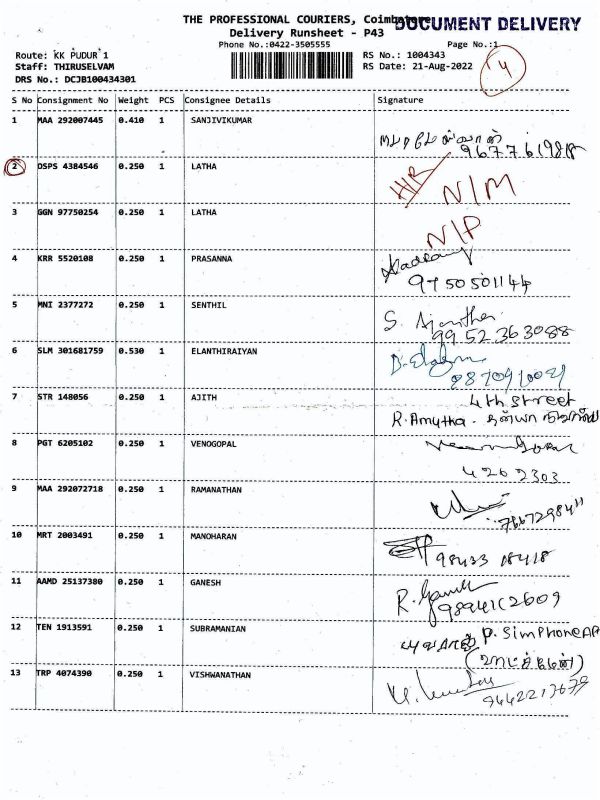 THE PROFESSIONAL COURIERS, Coimbatore
DOCUMENT DELIVERY
Delivery Runsheet - P43
Phone No.:0422-3505555
Page No.:1
Route: KK PUDUR 1
RS No.: 1004343
Staff: THIRUSELVAM
RS Date: 21-Aug-2022
DRS No.: DCJB100434301
S No Consignment No Weight PCS Consignee Details Signature
1 MAA 292007445 0.410 1 SANJIVIKUMAR
2 DSPS 4384546 0.250 1 LATHA H/R N/M
3 GGN 97750254 0.250 1 LATHA N/P
4 KRR 5520108 0.250 1 PRASANNA
9750501144
5 MNI 2377272 0.250 1 SENTHIL S. Ajantha
9952363088
6 SLM 301681759 0.530 1 ELANTHIRAIYAN
7 STR 148056 0.250 1 AJITH 4th street
R. Amutha.
8 PGT 6205102 0.250 1 VENOGOPAL
4262303
9 MAA 292072718 0.250 1 RAMANATHAN
10 MRT 2003491 0.250 1 MANOHARAN
98433 18418
11 AAMD 25137380 0.250 1 GANESH R.
12 TEN 1913591 0.250 1 SUBRAMANIAN
13 TRP 4074390 0.250 1 VISHWANATHAN
9442217679